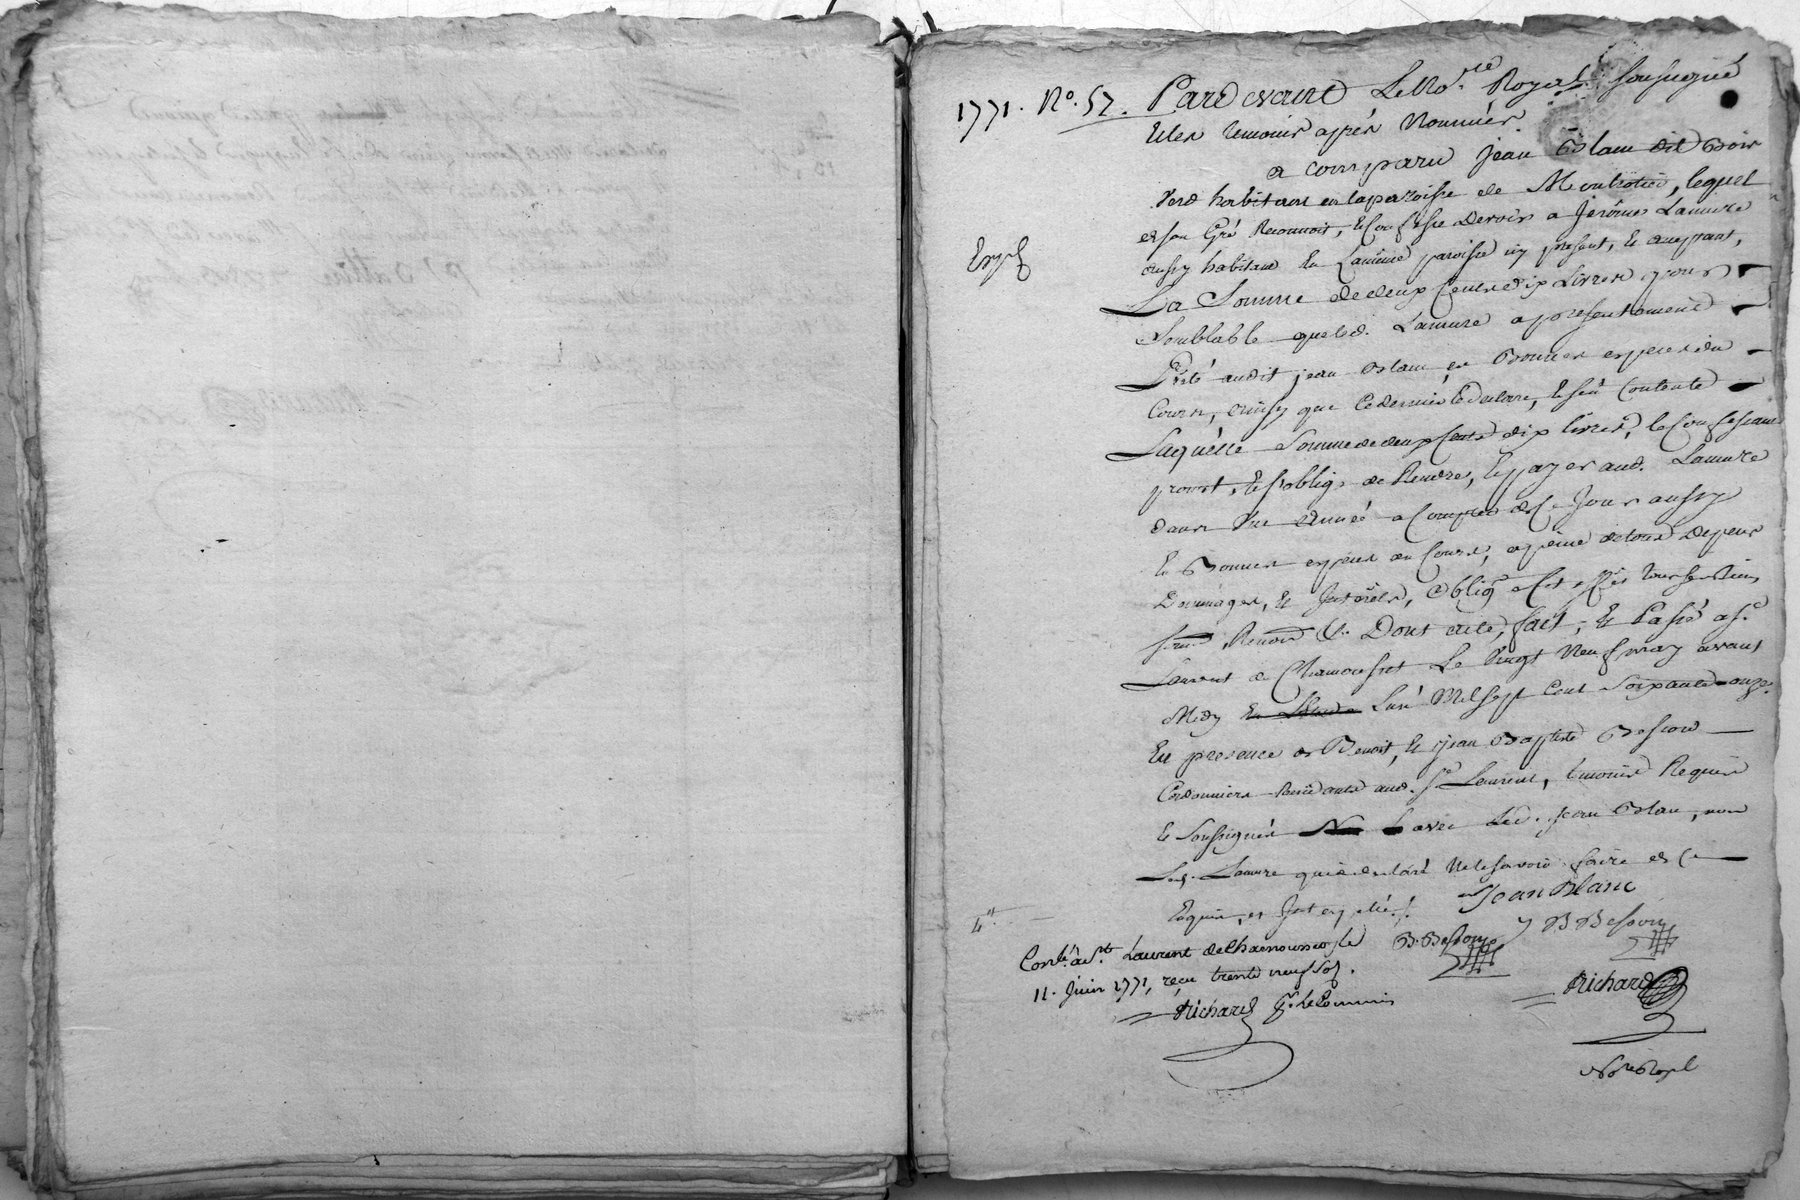 1771. No. 57. Pardevant Le No.re Royal soussigné
Et les temoins après Nommés.
a comparu jean Blanc dit Bois
Verd habitant en la paroisse de Montrotier, lequel
de son Gré Reconnoit, et Confesse Devoir a Jerôme Lamure
aussy habitant En La même paroisse icy present, et acceptant,
Expé
La Somme de deux Cents dix Livres pour
Semblable que led. Lamure a presentement
Prêté audit jean Blanc en Bonnes especes du
Cours, ainsy que ce dernier le declare, et s'en Contente
Laquelle Somme de deux Cents dix livres, le Confessant
promet, et s'oblige de Rendre, et payer aud. Lamure
dans Une Année a Compter de Ce Jour aussy
En Bonnes especes du Cours, a peine de tous Depens
Dommages, et Interêts, Oblige a Cet effet tous ses Biens
Renon &c. Dont acte, fait, et Passé a St.
Laurent de Chamousset Le Vingt Neuf may avant
Midy L'an Mil sept Cent Soixante onze.
En presence de Benoit, et jean Baptiste Besson
Cordonniers Residants aud. St. Laurent, temoins Requis
et Soussignés avec led. Jean Blanc, non
Led. Lamure qui a declaré Ne le savoir faire de Ce
Requis, et Interpellé./.
Jean Blanc
4 lt
B. Besson
J B Besson
Conlé. à St. Laurent de Chamousset le
11. Juin 1771, reçu trente neuf sols.
Richard
Richard Gr. le Commis
No.re Royal